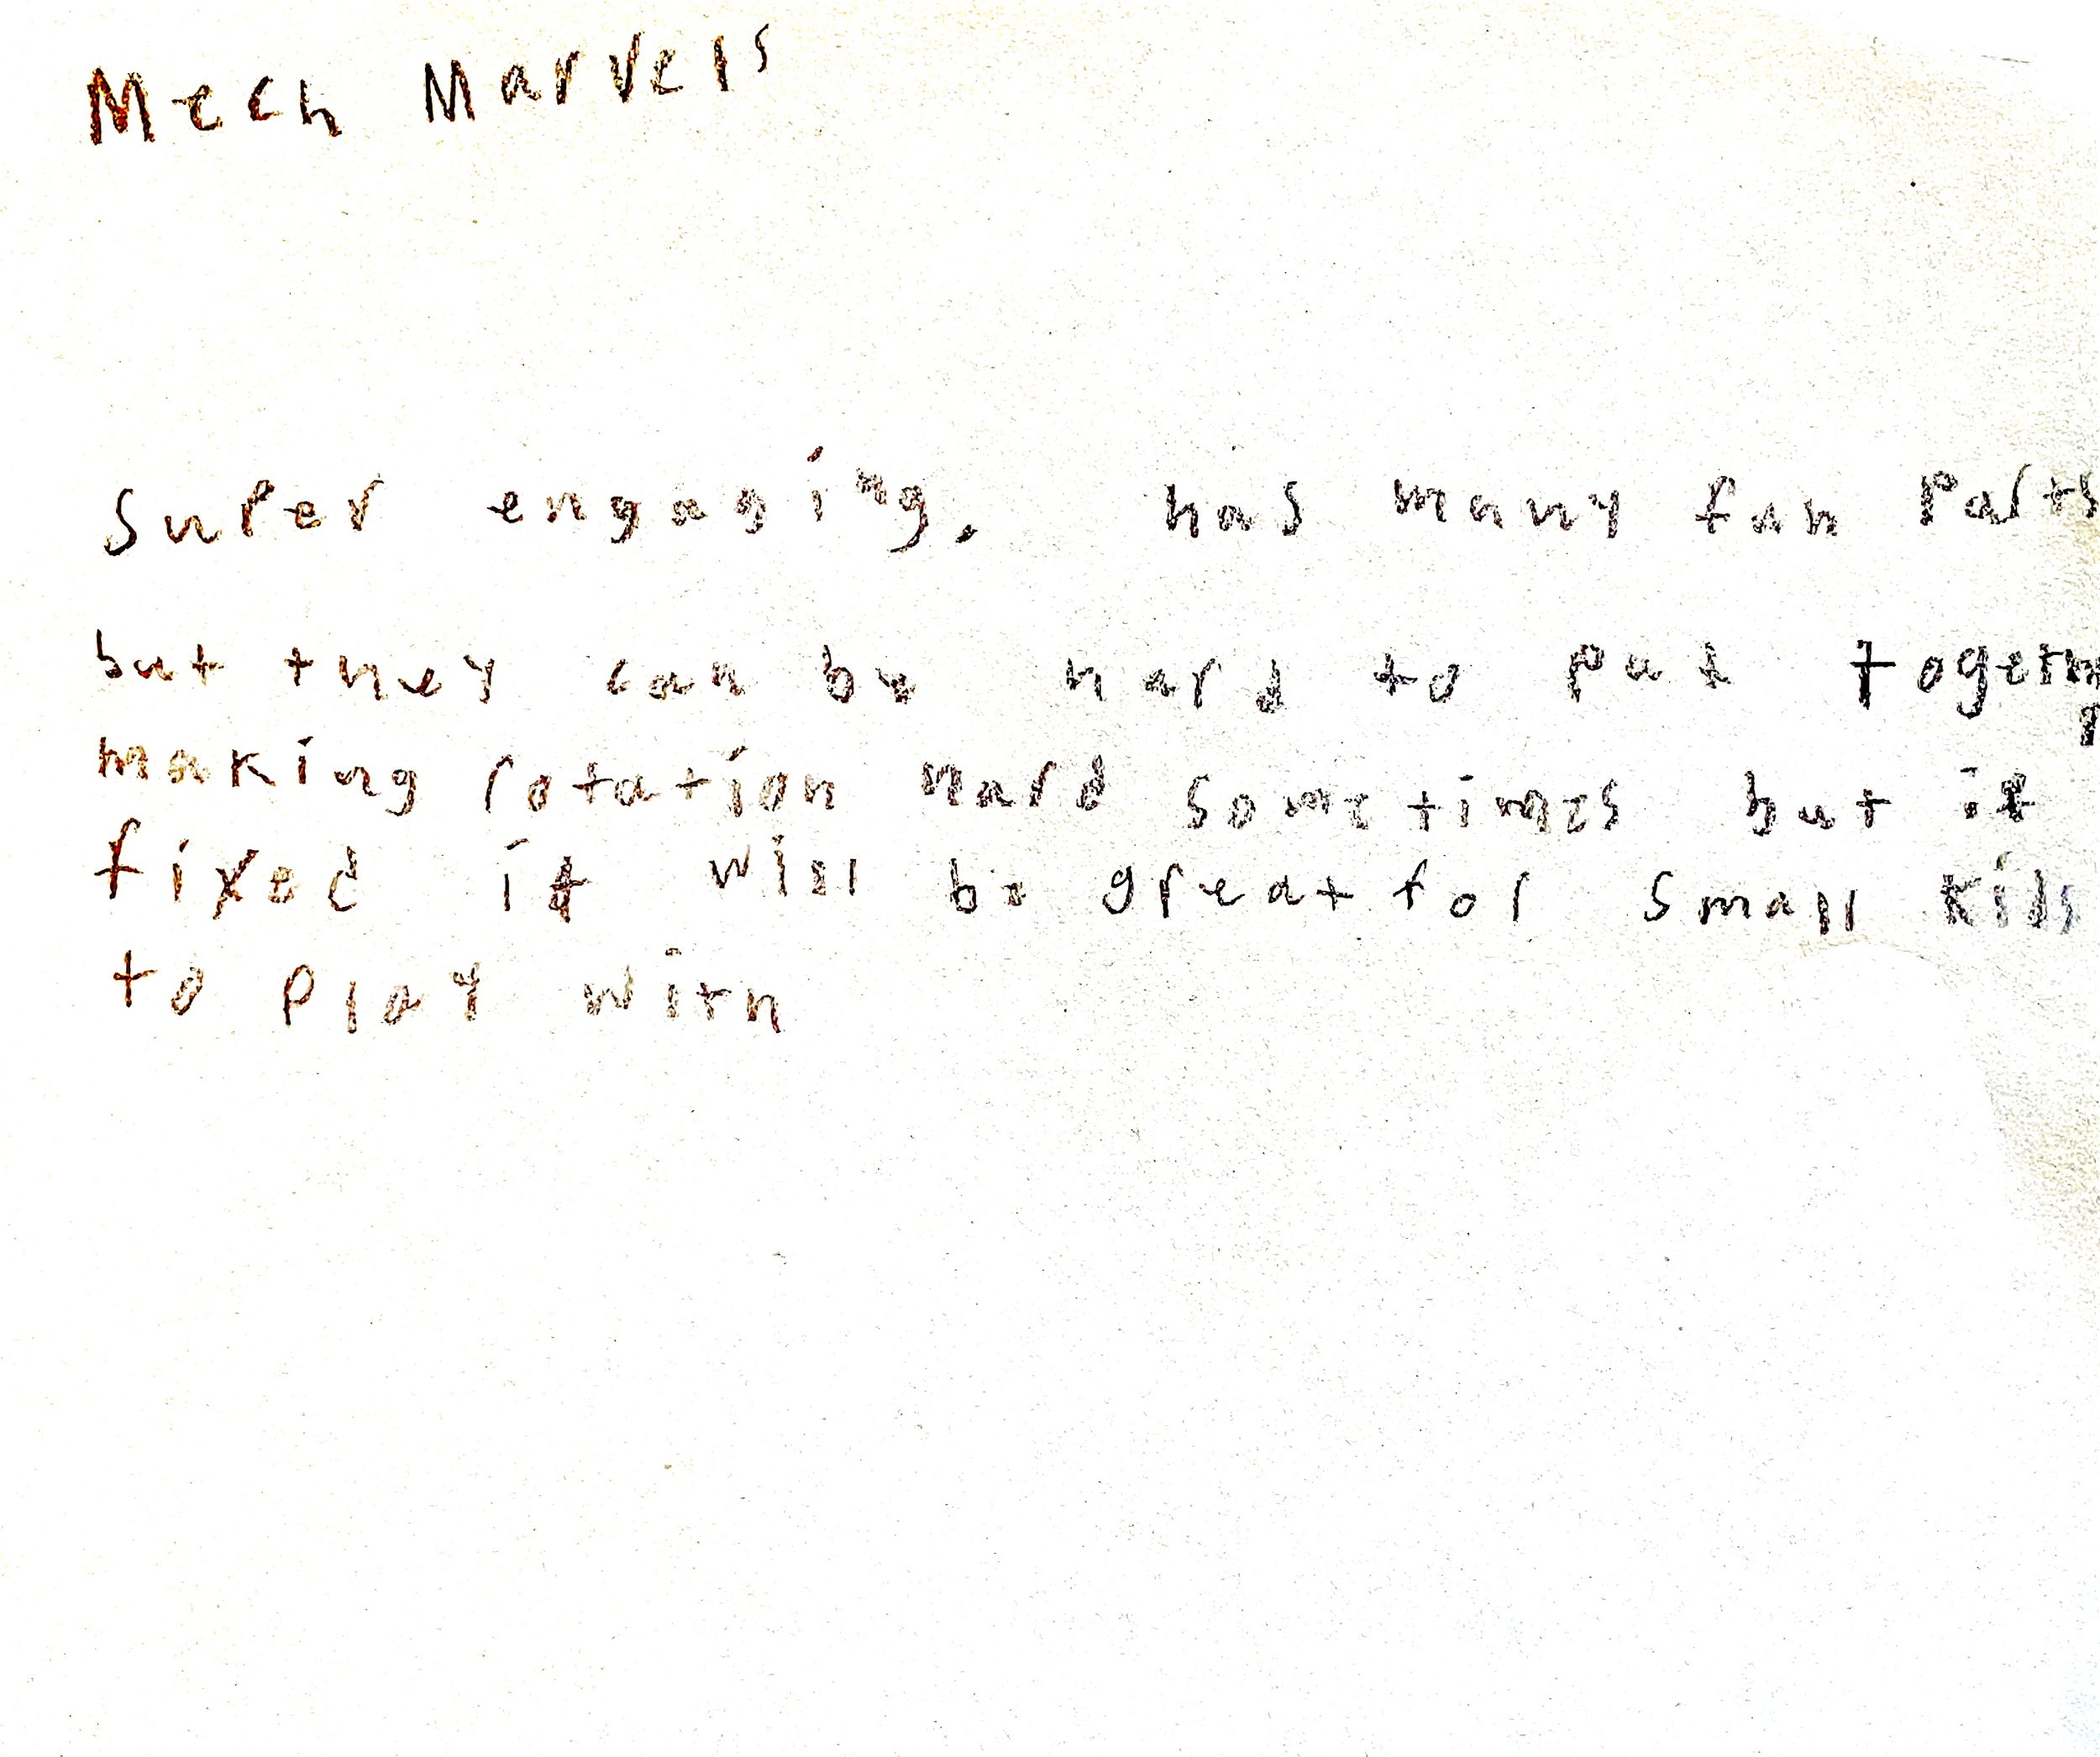 Mech Marvels
Super engaging, has many fun parts
but they can be hard to put together
making rotation hard sometimes but if
fixed it will be great for small kids
to play with